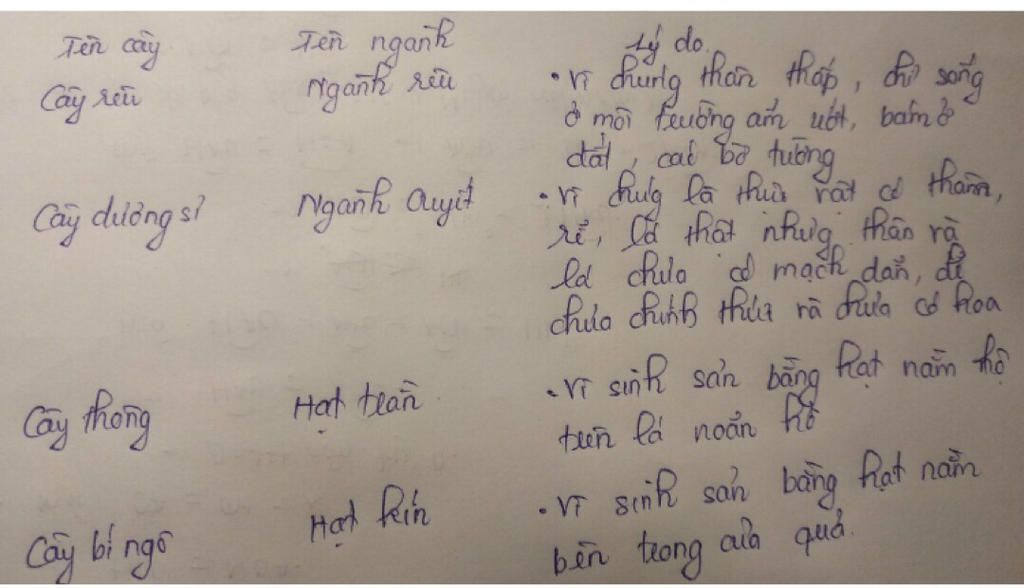 Tên cây Tên ngành Lý do.
Cây rêu Ngành rêu • Vì chúng thân thấp, chỉ sống
ở môi trường ẩm ướt, bám ở
đất, các bờ tường
Cây dương sỉ Ngành Quyết • Vì chúg là thực vật có thân,
rễ, lá thật nhưng thân và
lá chưa có mạch dẫn, để
chưa chính thức và chưa có hoa
Cây thông Hạt trần • Vì sinh sản bằng hạt nằm hộ
trên lá noãn hỏ
Cây bí ngô Hạt kín • Vì sinh sản bằng hạt nằm
bên trong của quả.